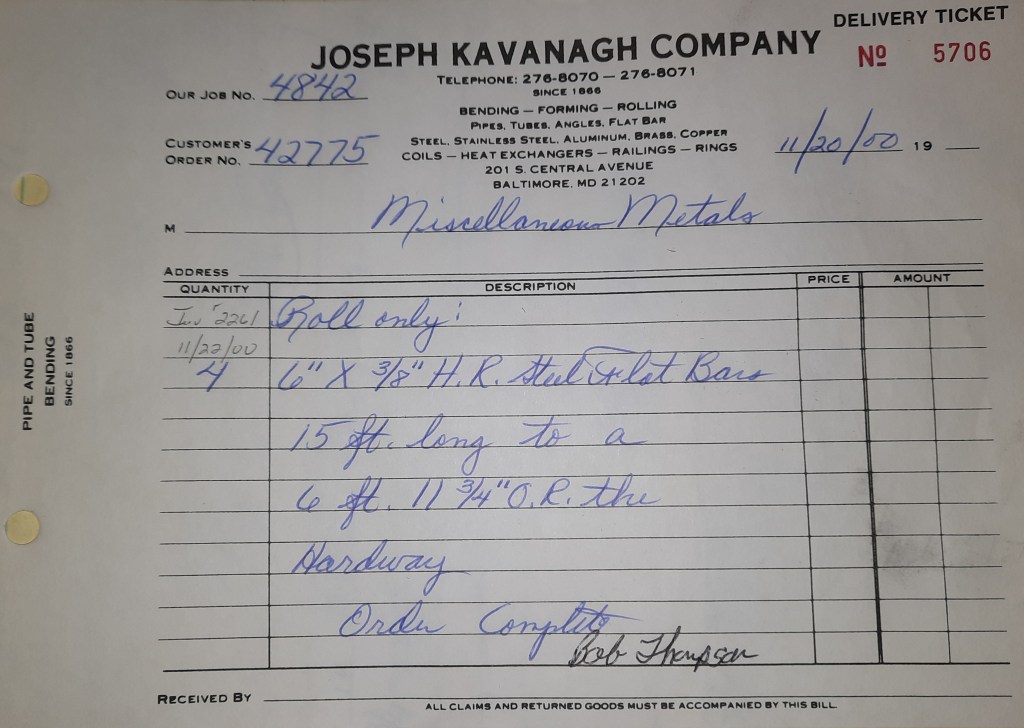 DELIVERY TICKET
JOSEPH KAVANAGH COMPANY
Nº 5706
TELEPHONE: 276-8070 — 276-8071
SINCE 1866
OUR JOB NO. 4842
BENDING — FORMING — ROLLING
PIPES, TUBES, ANGLES, FLAT BAR
STEEL, STAINLESS STEEL, ALUMINUM, BRASS, COPPER
CUSTOMER'S ORDER NO. 42775
COILS — HEAT EXCHANGERS — RAILINGS — RINGS
11/20/00 19
201 S. CENTRAL AVENUE
BALTIMORE, MD 21202
M Miscellaneous Metals
ADDRESS
QUANTITY DESCRIPTION PRICE AMOUNT
Inv # 2261 Roll only:
11/22/00
4 6" X 3/8" H.R. Steel Flat Bars
15 ft. long to a
6 ft. 11 3/4" O.R. the
Hardway
Order Complete
Bob Thompson
RECEIVED BY
ALL CLAIMS AND RETURNED GOODS MUST BE ACCOMPANIED BY THIS BILL
PIPE AND TUBE
BENDING
SINCE 1866